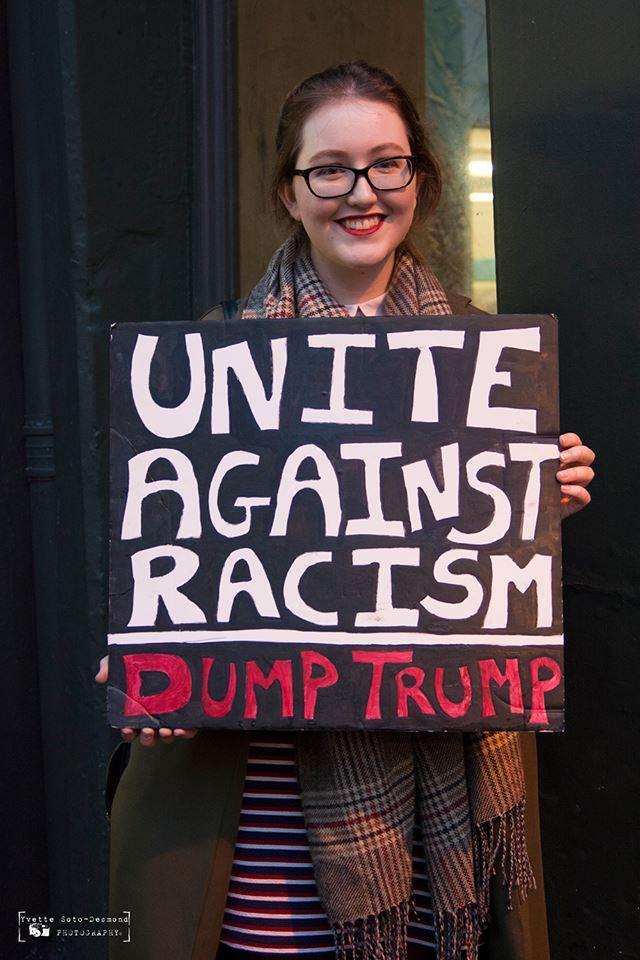 UNITE
AGAINST
RACISM
DUMP TRUMP
Yvette Soto-Desmond
PHOTOGRAPHY©